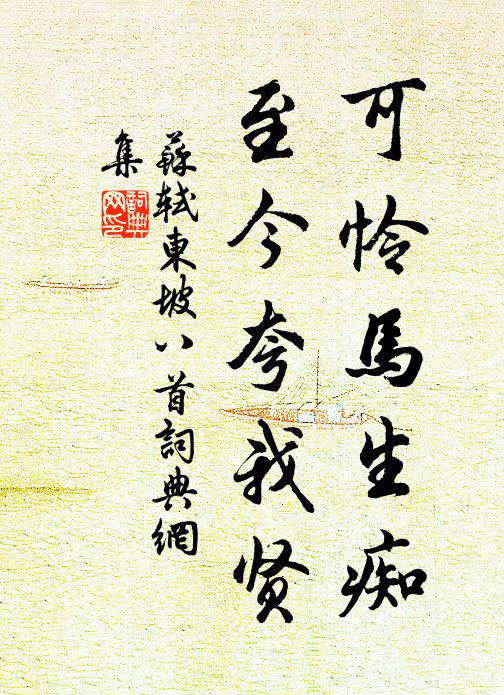 可怜馬生痴
至今夸我贤
蘇軾東坡八首詞典網
集
詞典
网印